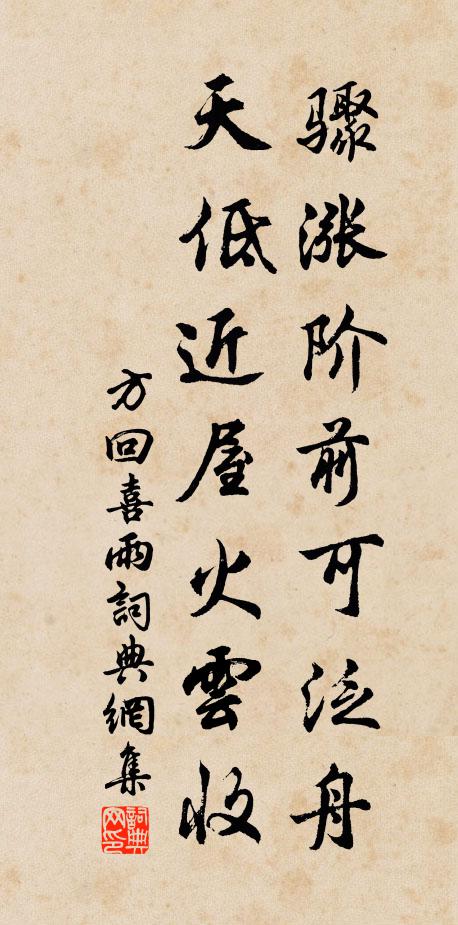 骤涨阶前可泛舟
天低近屋火雲收
方回喜雨詞典網集
詞典网印